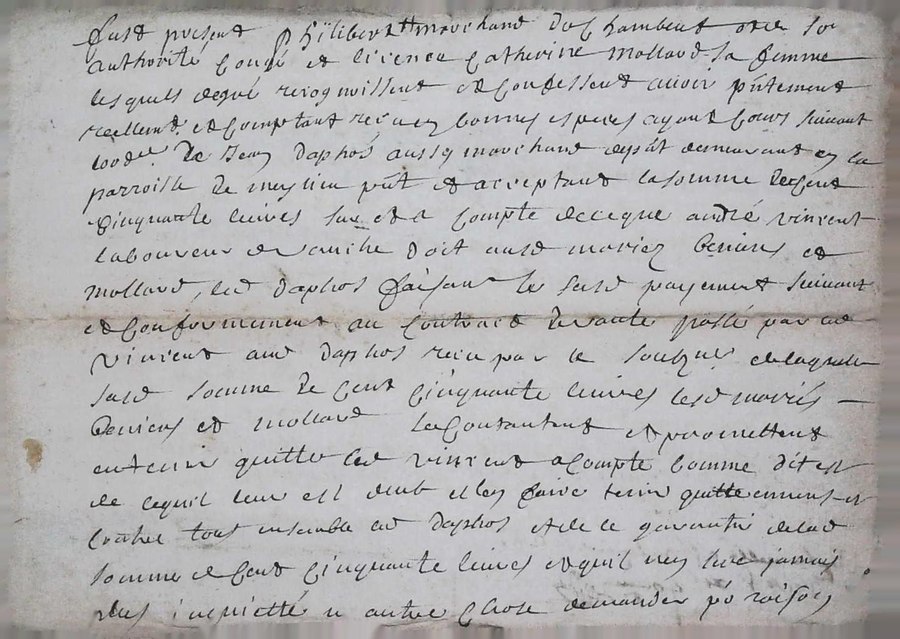 fust present Philibert marchand de Chambeut et de son
authorité congé et licence Catherine Mollard sa femme
lesquels de gré recognoissent et confessent avoir pñtement
reellemt et comptant receu en bonnes especes ayant cours suivant
de Jean daphos aussy marchand demeurant en la
parroisse de meylieu pñt et acceptant la somme de cent
cinquante livres sur et a compte de ce que andré vincent
laboureur de doit ausd mariez et
mollard, led daphos faisant le susd payement suivant
et conformement au contract de vante passé par led
vincent aud daphos receu par le soubzné de laquelle
susd somme de cent cinquante livres lesd mariés
et mollard se contantent et promettent
en tenir quitte led vincent a compte comme dit est
de ce quil leur est deub et len faire tenir quitte envers et
contre tous ensemble led daphos et de le garantir de lad
somme de cent cinquante livres et quil nen sera jamais
plus inquietté n autre chose demander pr raison